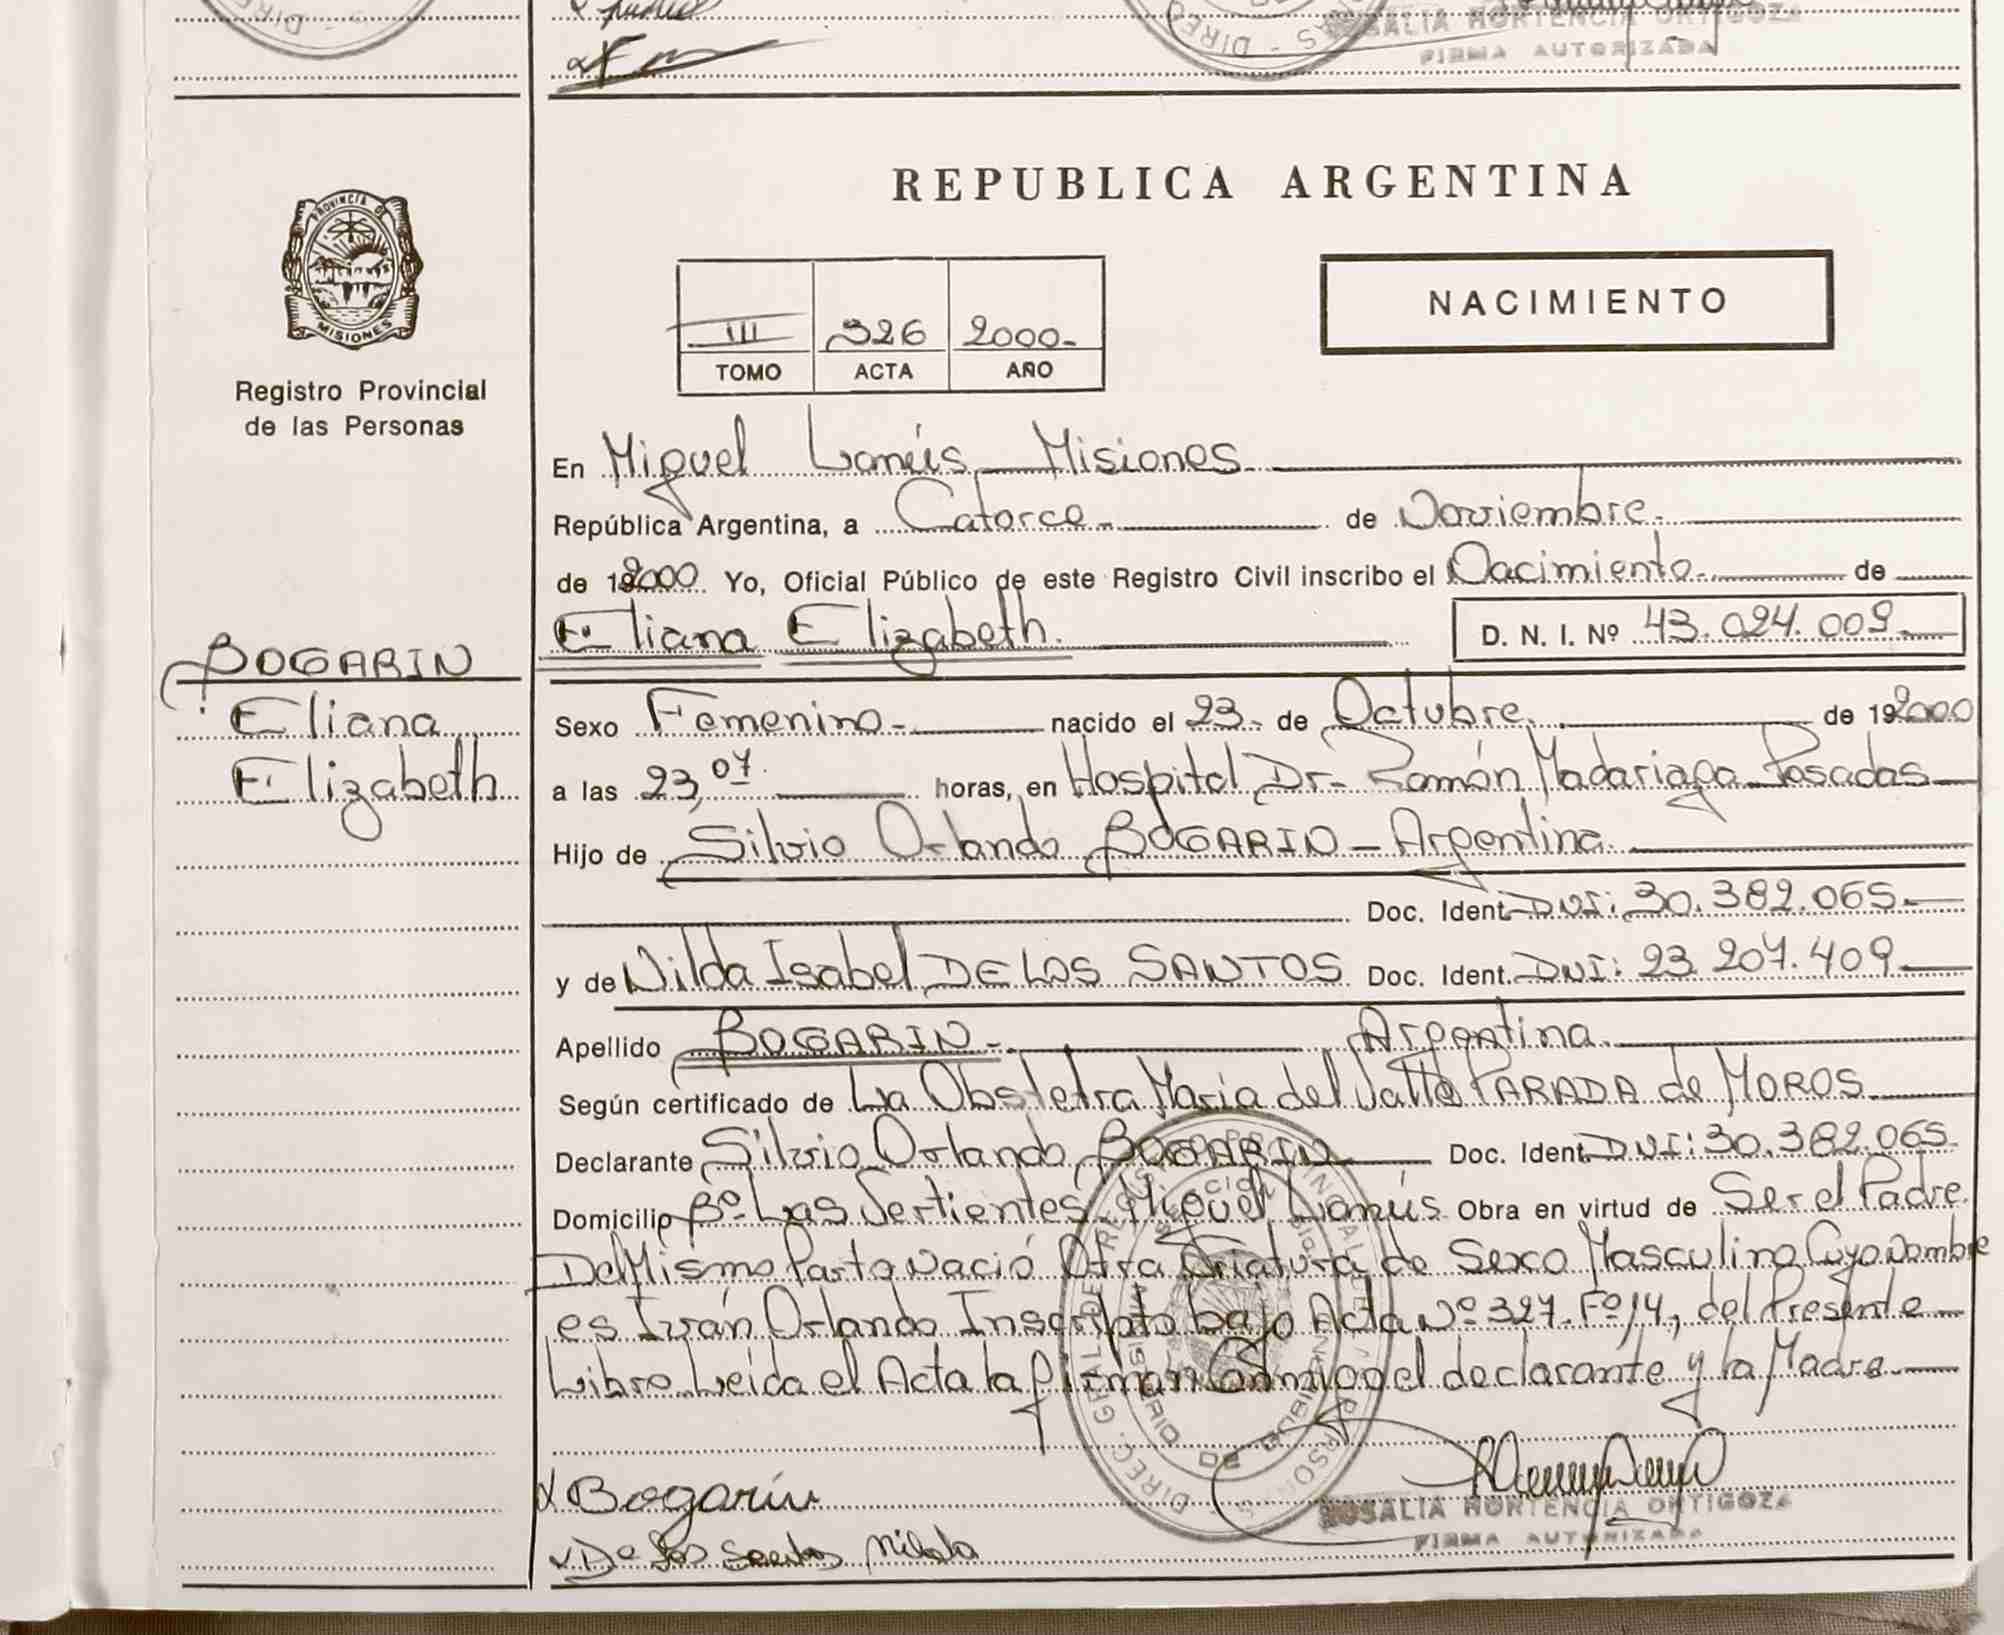 ROSALIA HORTENCIA ORTIGOZA
FIRMA AUTORIZADA
PROVINCIA DE
MISIONES
Registro Provincial
de las Personas
BOGARIN
Eliana
Elizabeth
REPUBLICA ARGENTINA
III 326 2000-
TOMO ACTA AÑO
NACIMIENTO
En Miguel Lanús Misiones
República Argentina, a Catorce de Noviembre
de 192000 Yo, Oficial Público de este Registro Civil inscribo el Nacimiento de
Eliana Elizabeth. D. N. I. Nº 43.024.009
Sexo Femenino nacido el 23 de Octubre de 192000
a las 23,07 horas, en Hospital Dr. Ramón Madariaga Posadas
Hijo de Silvio Orlando BOGARIN - Argentina
Doc. Ident. DNI: 30.382.065
y de Nilda Isabel DE LOS SANTOS Doc. Ident. DNI: 23.207.409
Apellido BOGARIN Argentina
Según certificado de La Obstetra Maria del Valle PARADA de MOROS
Declarante Silvio Orlando BOGARIN Doc. Ident. DNI: 30.382.065
Domicilio Bº Las Vertientes Miguel Lanús Obra en virtud de Ser el Padre
Del Mismo Parto Nació Otra Criatura de Sexo Masculino Cuyo Nombre
es Iván Orlando Inscripto bajo Acta Nº 327. Fº 14, del Presente
Libro Leida el Acta la firman Conmigo el declarante y la Madre
Bogarin
De los Santos Nilda
ROSALIA HORTENCIA ORTIGOZA
FIRMA AUTORIZADA